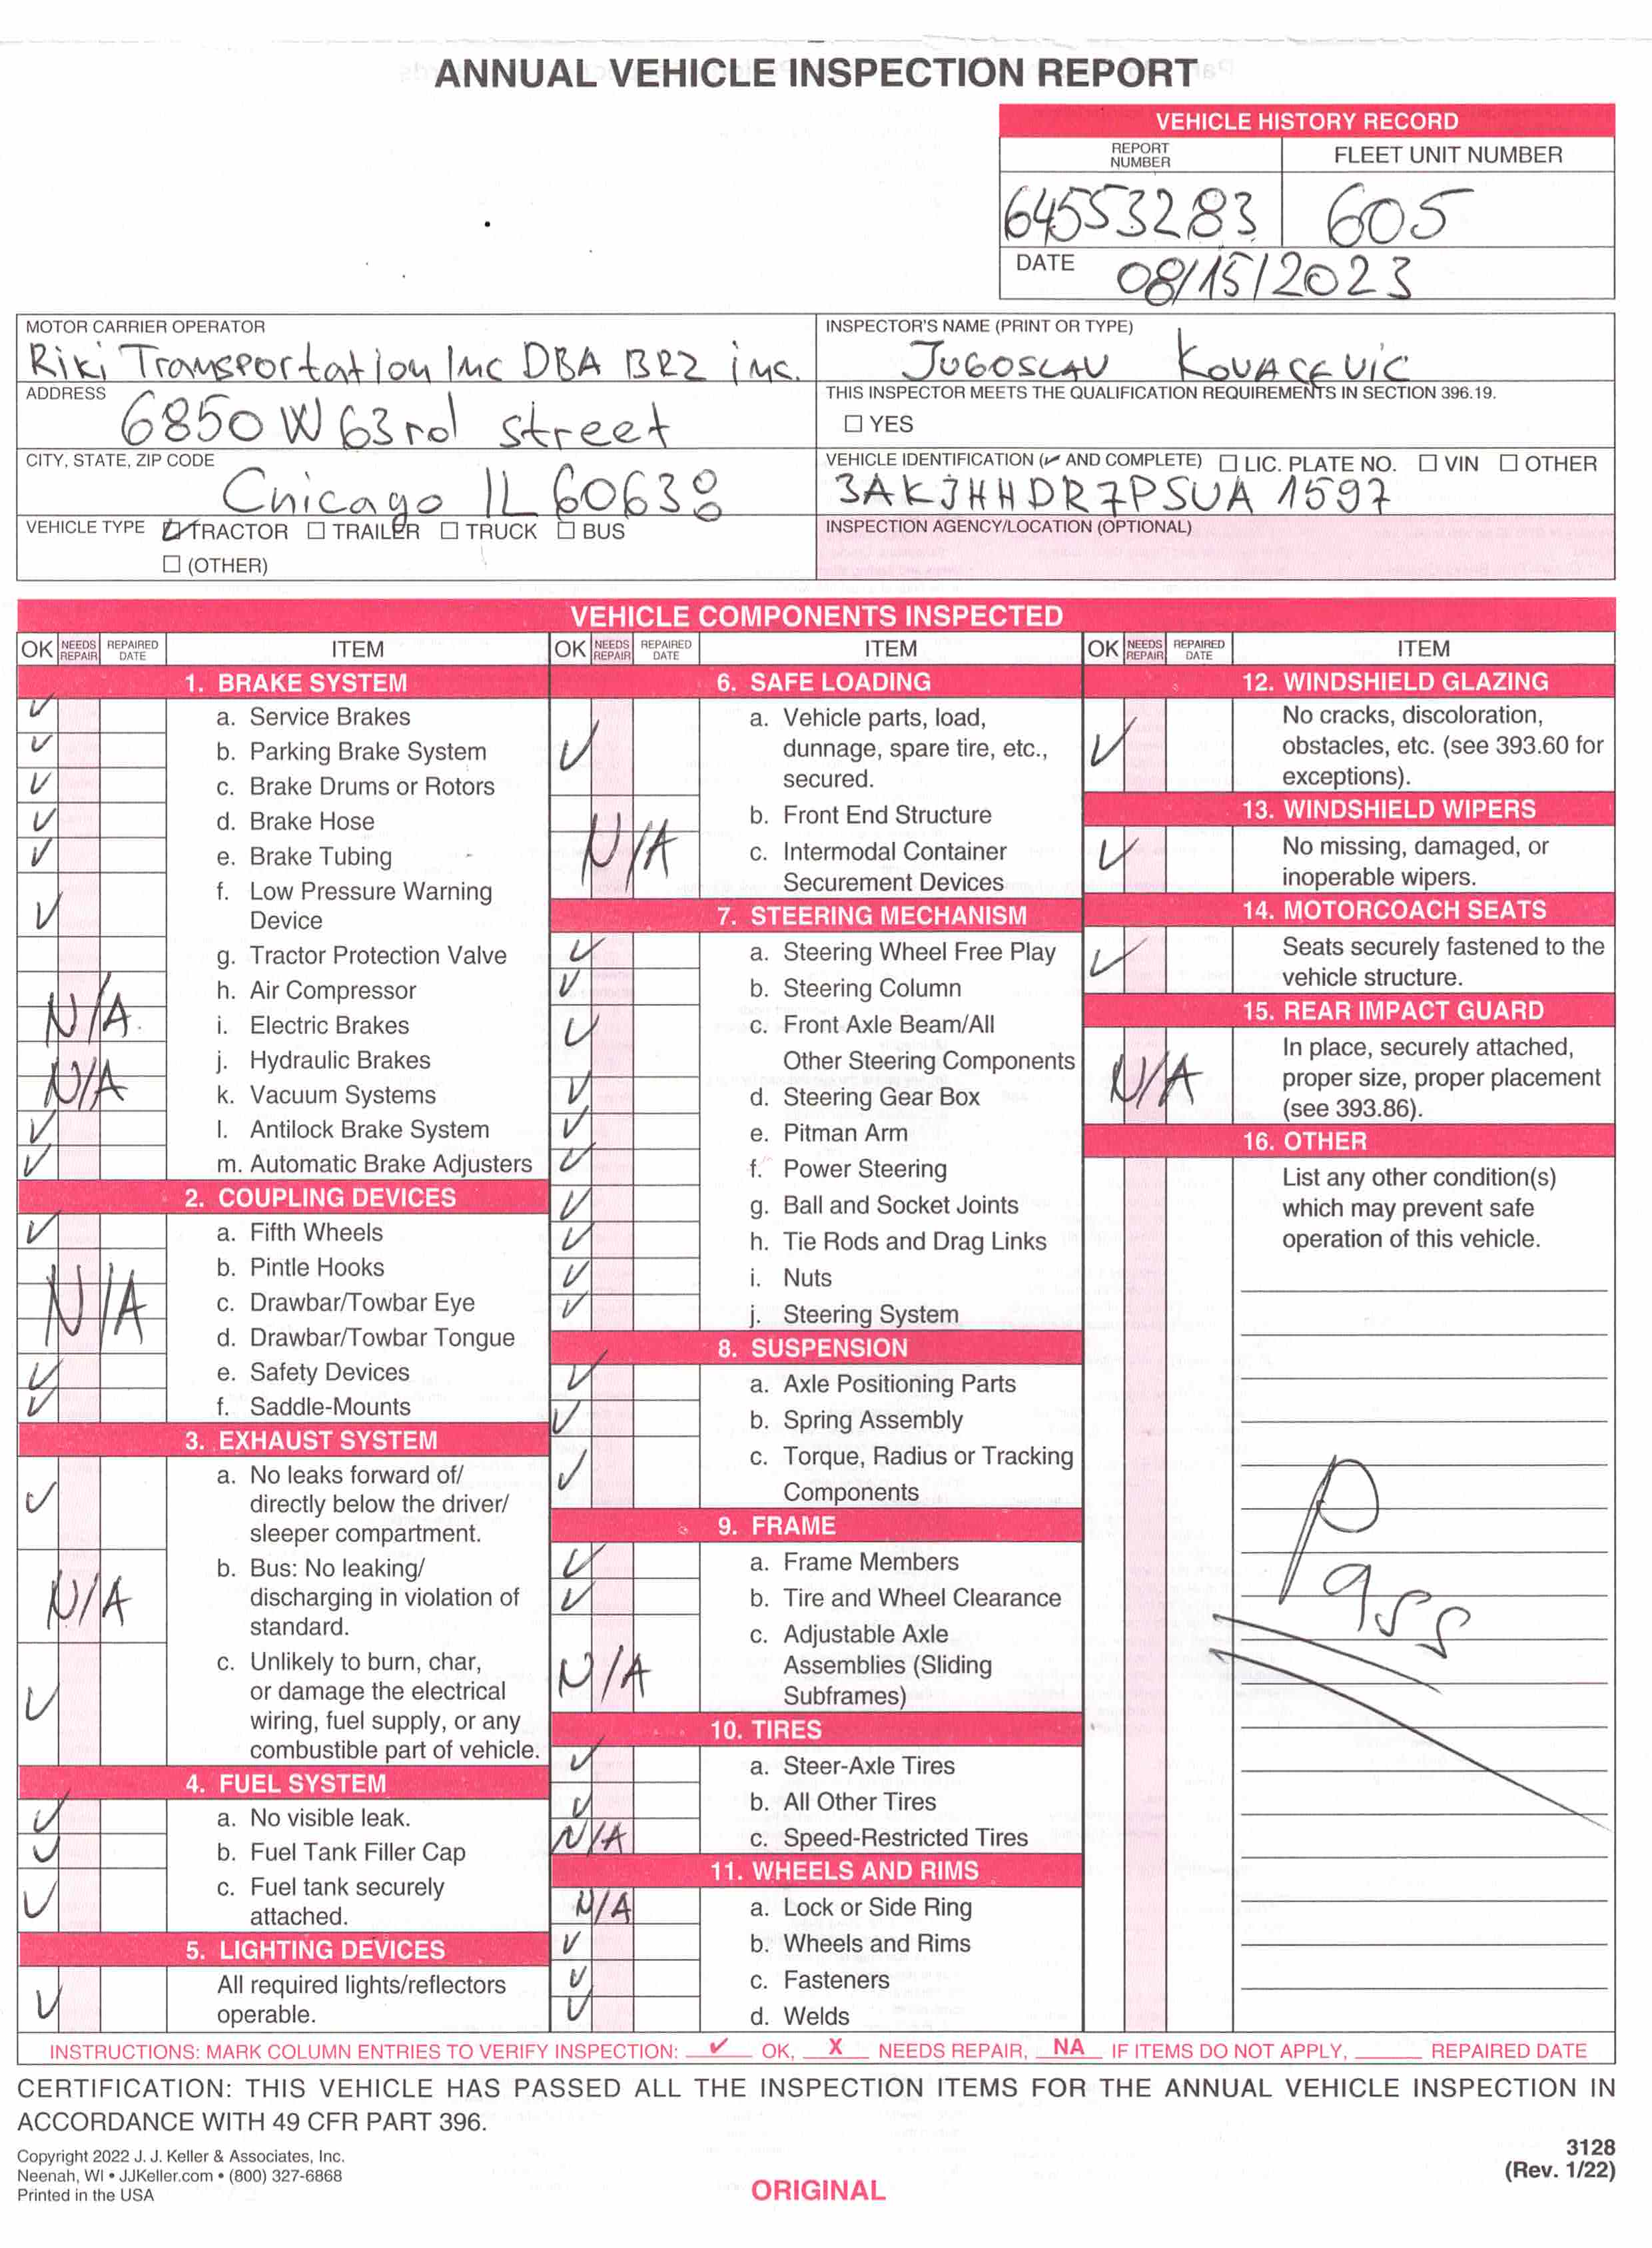 ANNUAL VEHICLE INSPECTION REPORT
VEHICLE HISTORY RECORD
REPORT NUMBER
FLEET UNIT NUMBER
64553283
605
DATE 08/15/2023
MOTOR CARRIER OPERATOR
Riki Transportation Inc DBA BRZ inc.
ADDRESS
6850 W 63rd street
CITY, STATE, ZIP CODE
Chicago IL 60638
VEHICLE TYPE ☑ TRACTOR ☐ TRAILER ☐ TRUCK ☐ BUS
☐ (OTHER)
INSPECTOR'S NAME (PRINT OR TYPE)
JUGOSLAV KOVACEVIC
THIS INSPECTOR MEETS THE QUALIFICATION REQUIREMENTS IN SECTION 396.19.
☐ YES
VEHICLE IDENTIFICATION (✓ AND COMPLETE) ☐ LIC. PLATE NO. ☐ VIN ☐ OTHER
3AKJHHDR7PSUA1597
INSPECTION AGENCY/LOCATION (OPTIONAL)
VEHICLE COMPONENTS INSPECTED
OK NEEDS REPAIR REPAIRED DATE ITEM
1. BRAKE SYSTEM
✓ a. Service Brakes
✓ b. Parking Brake System
✓ c. Brake Drums or Rotors
✓ d. Brake Hose
✓ e. Brake Tubing
✓ f. Low Pressure Warning
Device
g. Tractor Protection Valve
h. Air Compressor
N/A i. Electric Brakes
j. Hydraulic Brakes
N/A k. Vacuum Systems
✓ l. Antilock Brake System
✓ m. Automatic Brake Adjusters
2. COUPLING DEVICES
✓ a. Fifth Wheels
b. Pintle Hooks
N/A c. Drawbar/Towbar Eye
d. Drawbar/Towbar Tongue
✓ e. Safety Devices
✓ f. Saddle-Mounts
3. EXHAUST SYSTEM
✓ a. No leaks forward of/
directly below the driver/
sleeper compartment.
N/A b. Bus: No leaking/
discharging in violation of
standard.
✓ c. Unlikely to burn, char,
or damage the electrical
wiring, fuel supply, or any
combustible part of vehicle.
4. FUEL SYSTEM
✓ a. No visible leak.
✓ b. Fuel Tank Filler Cap
✓ c. Fuel tank securely
attached.
5. LIGHTING DEVICES
✓ All required lights/reflectors
operable.
OK NEEDS REPAIR REPAIRED DATE ITEM
6. SAFE LOADING
✓ a. Vehicle parts, load,
dunnage, spare tire, etc.,
secured.
b. Front End Structure
N/A c. Intermodal Container
Securement Devices
7. STEERING MECHANISM
✓ a. Steering Wheel Free Play
✓ b. Steering Column
✓ c. Front Axle Beam/All
Other Steering Components
✓ d. Steering Gear Box
✓ e. Pitman Arm
✓ f. Power Steering
✓ g. Ball and Socket Joints
✓ h. Tie Rods and Drag Links
✓ i. Nuts
✓ j. Steering System
8. SUSPENSION
✓ a. Axle Positioning Parts
✓ b. Spring Assembly
✓ c. Torque, Radius or Tracking
Components
9. FRAME
✓ a. Frame Members
✓ b. Tire and Wheel Clearance
N/A c. Adjustable Axle
Assemblies (Sliding
Subframes)
10. TIRES
✓ a. Steer-Axle Tires
✓ b. All Other Tires
N/A c. Speed-Restricted Tires
11. WHEELS AND RIMS
N/A a. Lock or Side Ring
✓ b. Wheels and Rims
✓ c. Fasteners
✓ d. Welds
OK NEEDS REPAIR REPAIRED DATE ITEM
12. WINDSHIELD GLAZING
✓ No cracks, discoloration,
obstacles, etc. (see 393.60 for
exceptions).
13. WINDSHIELD WIPERS
✓ No missing, damaged, or
inoperable wipers.
14. MOTORCOACH SEATS
✓ Seats securely fastened to the
vehicle structure.
15. REAR IMPACT GUARD
N/A In place, securely attached,
proper size, proper placement
(see 393.86).
16. OTHER
List any other condition(s)
which may prevent safe
operation of this vehicle.
Pass
INSTRUCTIONS: MARK COLUMN ENTRIES TO VERIFY INSPECTION: ✓ OK, X NEEDS REPAIR, NA IF ITEMS DO NOT APPLY, ____ REPAIRED DATE
CERTIFICATION: THIS VEHICLE HAS PASSED ALL THE INSPECTION ITEMS FOR THE ANNUAL VEHICLE INSPECTION IN
ACCORDANCE WITH 49 CFR PART 396.
Copyright 2022 J. J. Keller & Associates, Inc.
Neenah, WI • JJKeller.com • (800) 327-6868
Printed in the USA
ORIGINAL
3128
(Rev. 1/22)